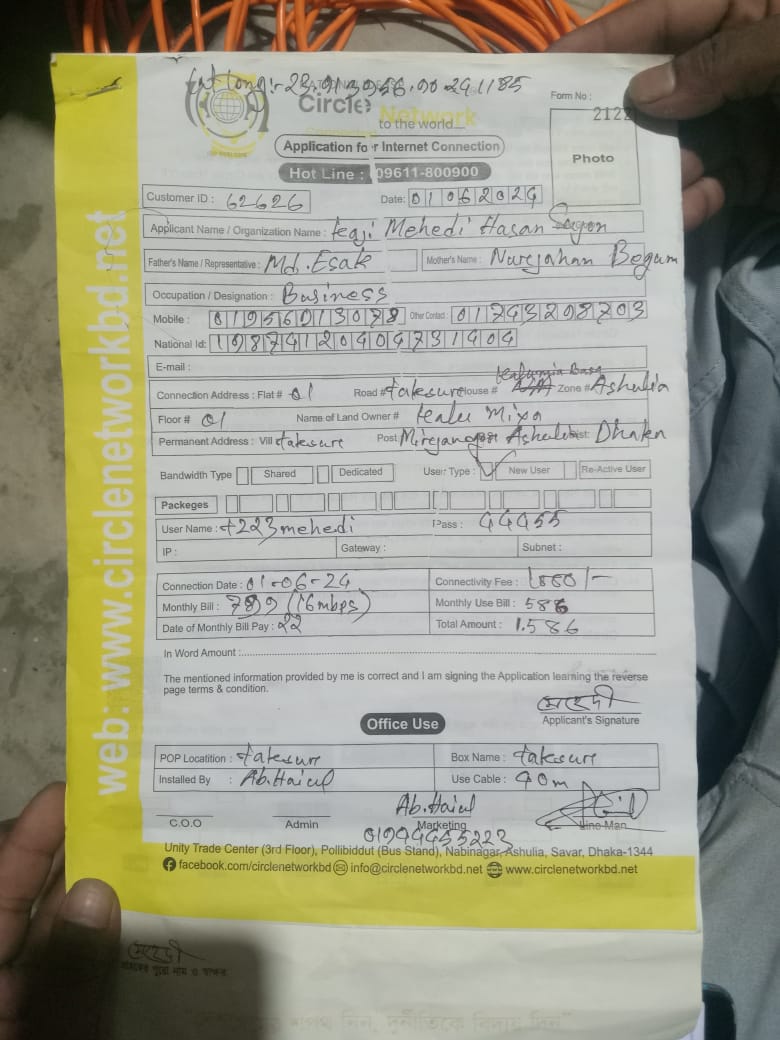 Lat Long:- 23.913956.90.241185
Circle Network
to the world...
Form No :
2122
Photo
Application for Internet Connection
Hot Line : 09611-800900
Customer ID : 62626 Date: 01062024
Applicant Name / Organization Name : Kazi Mehedi Hasan
Father's Name / Representative : Md. Esak Mother's Name : Nurjahan Begum
Occupation / Designation : Business
Mobile : 01956013078 Other Contact : 01743298703
National Id: 19874120404731404
E-mail :
Connection Address : Flat # 01 Road # takesure House # Zone # Ashulia
Floor # 01 Name of Land Owner #
Permanent Address : Vill takesure Post: Ashulia Dist: Dhaka
Bandwidth Type Shared Dedicated User Type : New User Re-Active User
Packeges
User Name : t223mehedi Pass : 44455
IP : Gateway : Subnet :
Connection Date : 01-06-24 Connectivity Fee : 1000/-
Monthly Bill : 789 (16mbps) Monthly Use Bill : 586
Date of Monthly Bill Pay : 22 Total Amount : 1.586
In Word Amount :
The mentioned information provided by me is correct and I am signing the Application learning the reverse
page terms & condition.
মেহেদী
Applicant's Signature
Office Use
POP Locatition : takesure Box Name : takesure
Installed By : Ab. Haiul Use Cable : 40m
Ab. Haiul
C.O.O Admin Marketing Line Man
01944455223
Unity Trade Center (3rd Floor), Pollibiddut (Bus Stand), Nabinagar, Ashulia, Savar, Dhaka-1344
facebook.com/circlenetworkbd info@circlenetworkbd.net www.circlenetworkbd.net
web: www.circlenetworkbd.net
মেহেদী